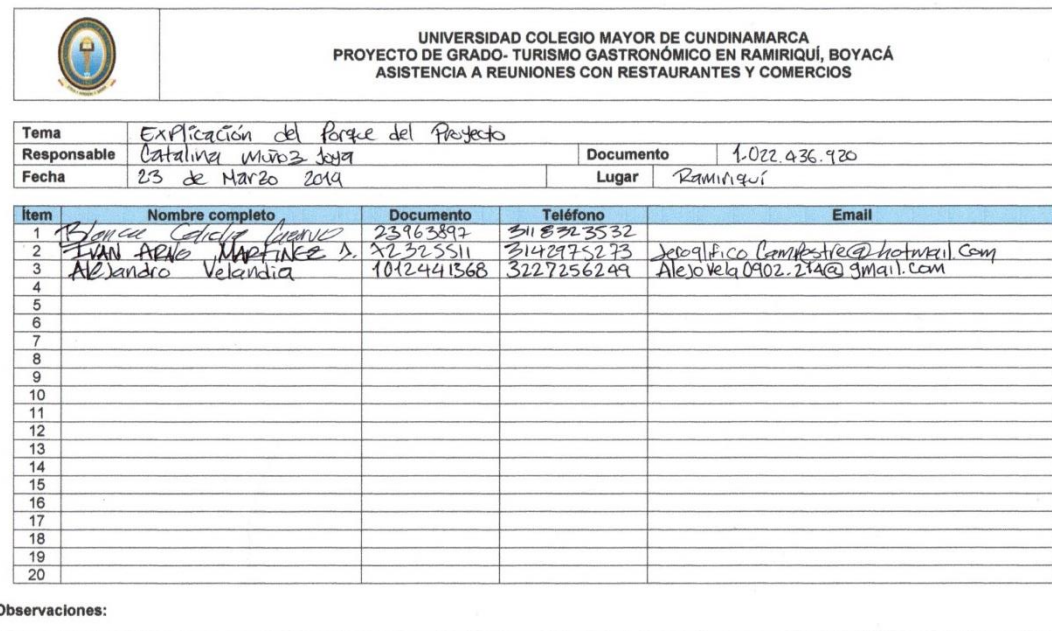 UNIVERSIDAD COLEGIO MAYOR DE CUNDINAMARCA
PROYECTO DE GRADO- TURISMO GASTRONÓMICO EN RAMIRIQUÍ, BOYACÁ
ASISTENCIA A REUNIONES CON RESTAURANTES Y COMERCIOS
Tema Explicación del Porque del Proyecto
Responsable Catalina Muñoz Joya Documento 1.022.436.920
Fecha 23 de Marzo 2019 Lugar Ramiriquí
Ítem Nombre completo Documento Teléfono Email
1 Blanca Cuervo 23963897 3118323532
2 IVAN MARTINEZ 72325511 3142975273 Jeroglifico Campestre@hotmail.com
3 Alejandro Velandia 1012441368 3227256249 AlejoVela0902.214@gmail.com
4
5
6
7
8
9
10
11
12
13
14
15
16
17
18
19
20
Observaciones: